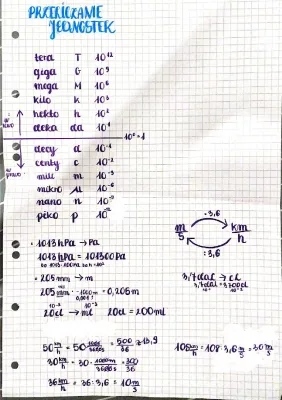 PRZELICZANIE
JEDNOSTEK
tera T 10¹²
giga G 10⁹
mega M 10⁶
kilo k 10³
hekto h 10²
deka da 10¹
10⁰=1
decy d 10⁻¹
centy c 10⁻²
mili m 10⁻³
mikro μ 10⁻⁶
nano n 10⁻⁹
piko p 10⁻¹²
·3,6
m/s km/h
:3,6
• 1013hPa → Pa
1013hPa = 101300Pa
• 205mm → m
205 mm = 0,205m
20cl → ml 20cl = 200ml
3,7dal → cl
3,7dal = 3700cl
50 km/h = 50 · 1000/3600s = 500/36 ≈ 13,9
30 km/h = 30 · 1000m/3600s = 300/36
36 km/h = 36 : 3,6 = 10 m/s
108 km/h = 108 : 3,6 m/s = 30 m/s